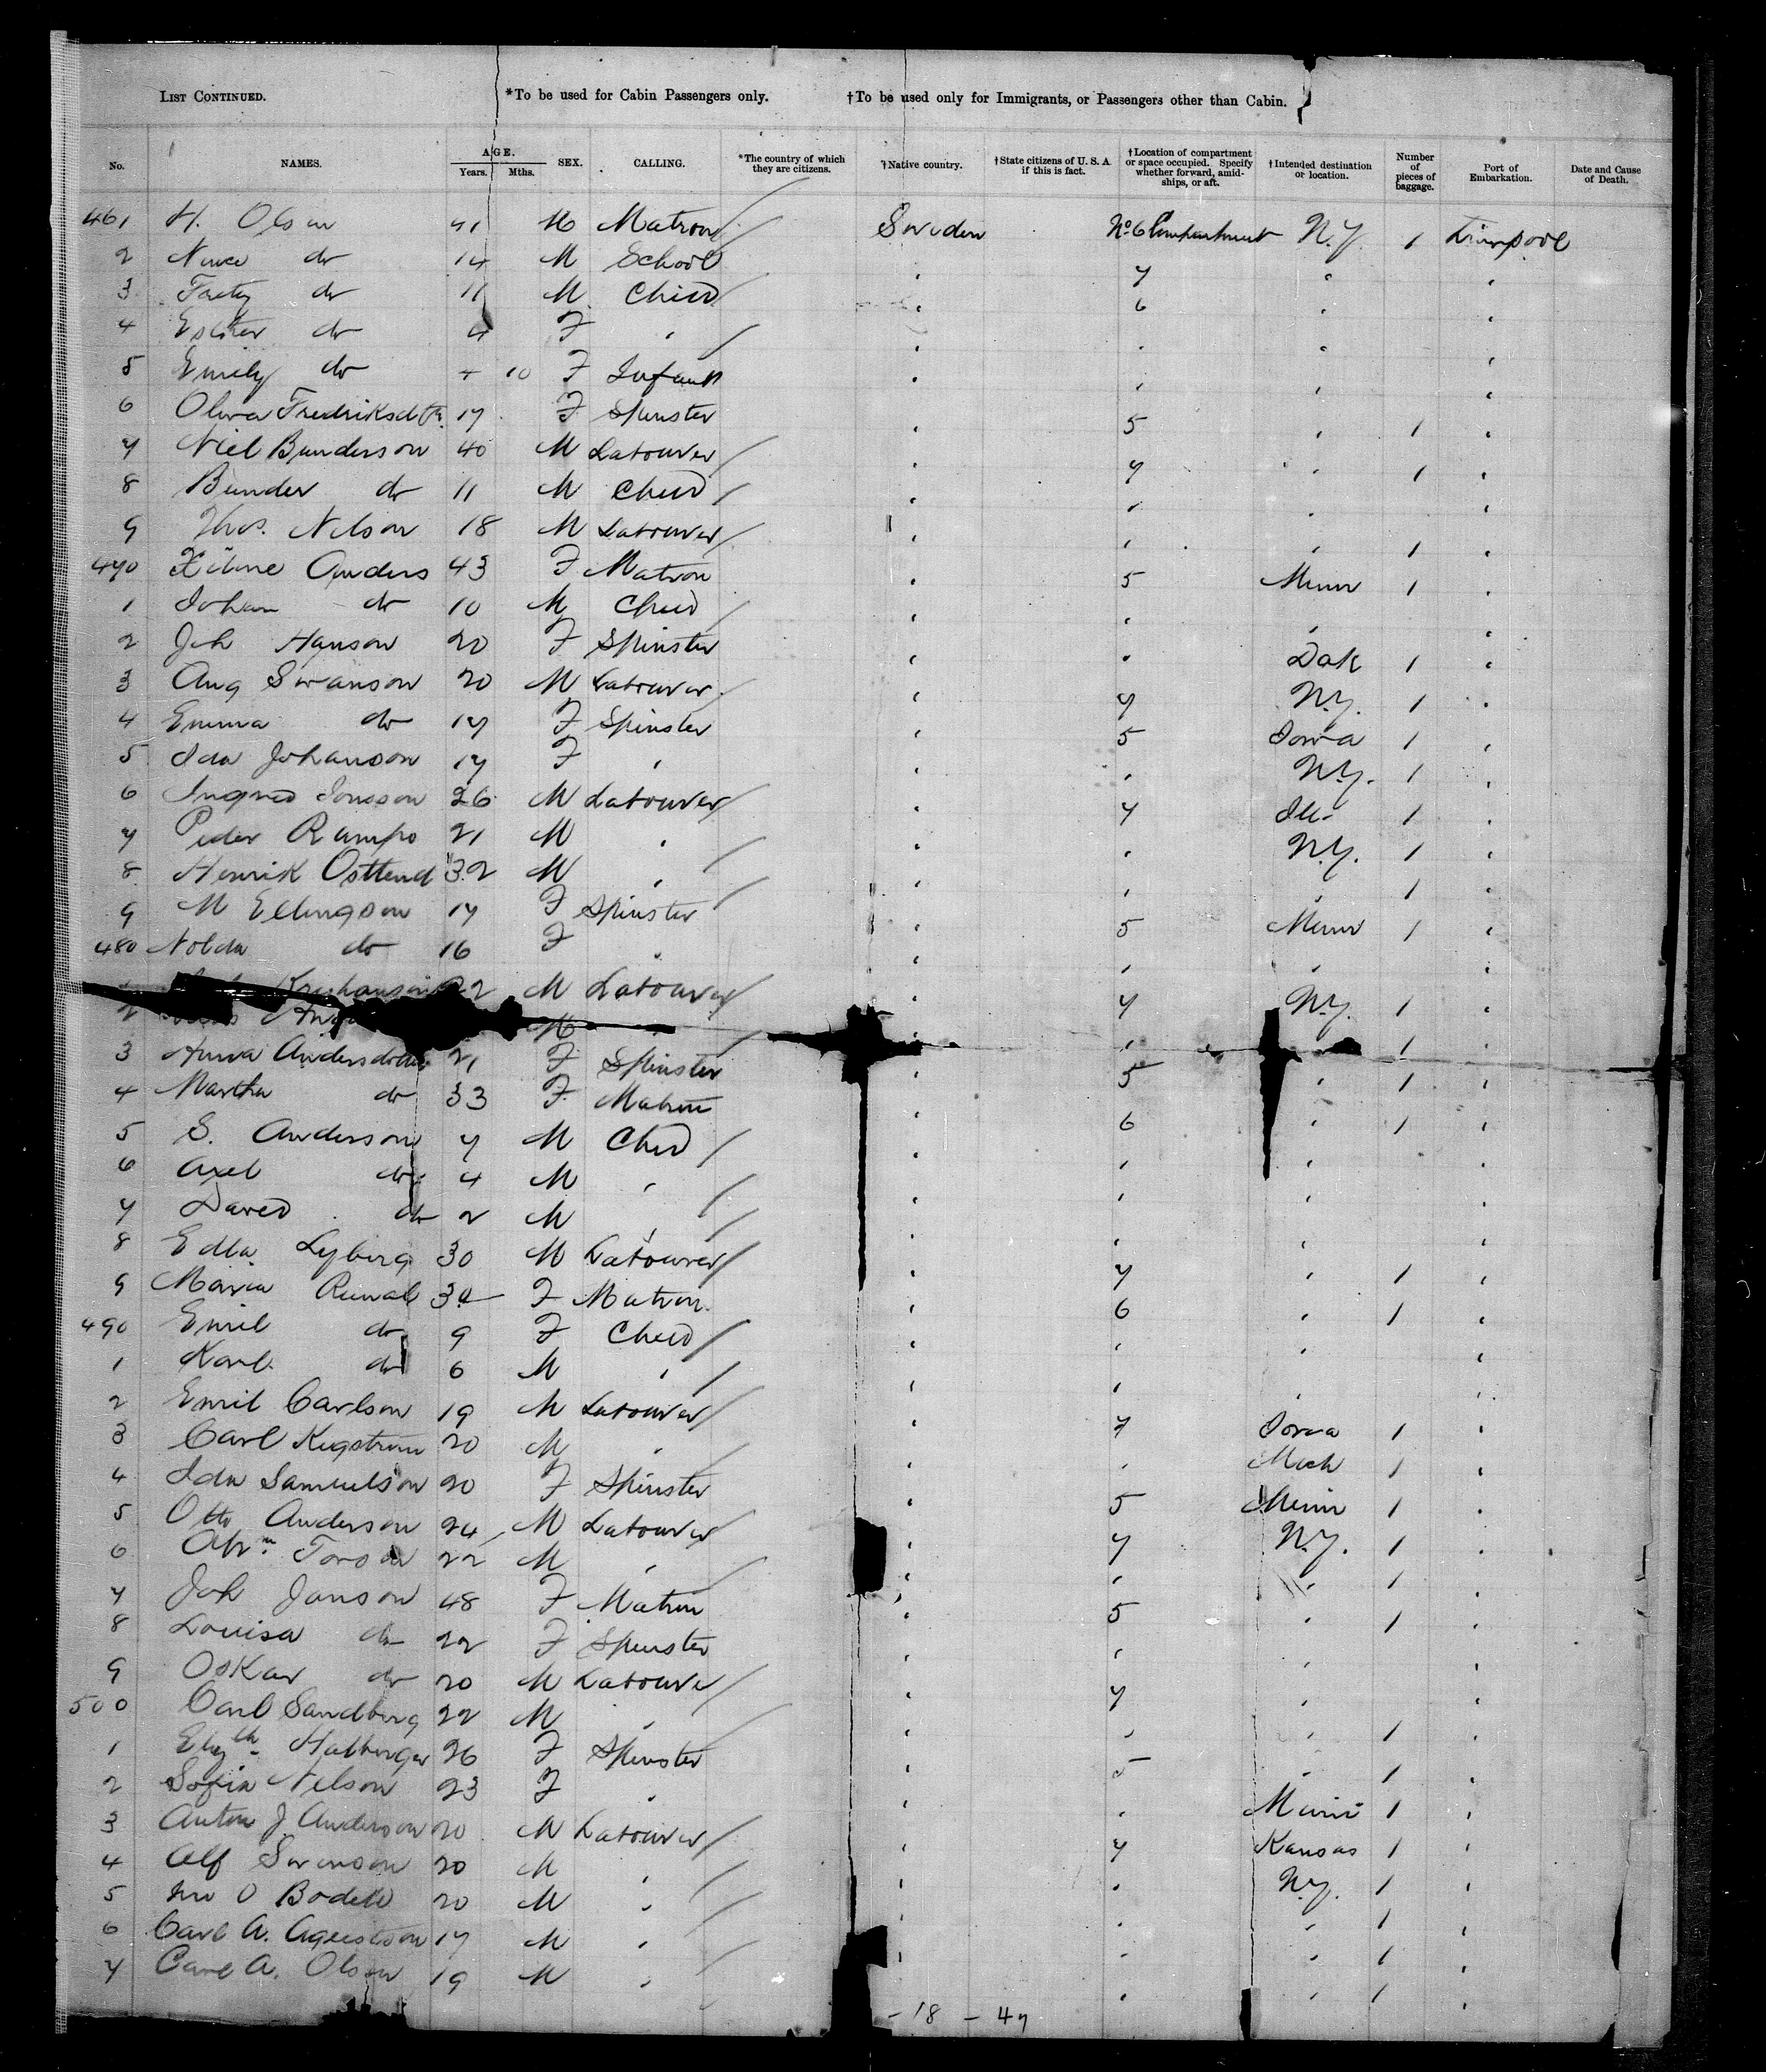 LIST CONTINUED. *To be used for Cabin Passengers only. †To be used only for Immigrants, or Passengers other than Cabin.
No. NAMES. AGE. Years. Mths. SEX. CALLING. *The country of which they are citizens. †Native country. †State citizens of U. S. A. if this is fact. †Location of compartment or space occupied. Specify whether forward, amidships, or aft. †Intended destination or location. Number of pieces of baggage. Port of Embarkation. Date and Cause of Death.
461 H. Olson 41 Matron Sweden No 6 Compartment N.Y. 1 Liverpool
2 do 14 M School " 7 " "
3 do 11 M Child " 6 " "
4 Esther do 4 F " " " " "
5 Emily do 10 F Infant " " " "
6 Oliva Fredriksdtr. 17 F Spinster " 5 " 1 "
7 Niel Bunderson 40 M Labourer " 7 " 1 "
8 Bunder do 11 M Child " " " "
9 Thos. Nelson 18 M Labourer " " " 1 "
470 Anders 43 F Matron " 5 Minn 1 "
1 Johan do 10 M Child " " " "
2 Joh Hanson 20 F Spinster " " Dak 1 "
3 Aug Swanson 20 M Labourer " 7 N.Y. 1 "
4 Emma do 17 F Spinster " 5 Iowa 1 "
5 Ida Johanson 17 F " " " N.Y. 1 "
6 Jonsson 26 M Labourer " 7 Ill. 1 "
7 Peder Rampo 21 M " " " N.Y. 1 "
8 Henrik Osttend 32 M " " " " 1 "
9 M Ellingson 17 F Spinster " 5 Minn 1 "
480 do 16 F " " " " "
22 M Labourer " 7 N.Y. 1 "
2 " " 1
3 Anna Andersdotter 21 F Spinster " 5 " 1 "
4 Martha do 33 F Matron " 6 " 1 "
5 S. Anderson 7 M Child " " " "
6 Axel do 4 M " " " " "
7 David do 2 M " " " " "
8 Edla Lyberg 30 M Labourer " 7 " 1 "
9 Maria 30 F Matron " 6 " 1 "
490 Emil do 9 F Child " " " "
1 Karl do 6 M " " " " "
2 Emil Carlson 19 M Labourer " 7 Iowa 1 "
3 Carl 20 M " " " Mich 1 "
4 Ida Samuelson 20 F Spinster " 5 Minn 1 "
5 Otto Anderson 24 M Labourer " 7 N.Y. 1 "
6 22 M " " " " 1 "
7 Joh Janson 48 F Matron " 5 " 1 "
8 Louisa do 22 F Spinster " " " "
9 Oskar do 20 M Labourer " 7 " "
500 Carl Sandberg 22 M " " " " 1 "
1 Elizth. 26 F Spinster " 5 " 1 "
2 Sofia Nelson 23 F " " " Minn 1 "
3 Anton J Anderson 20 M Labourer " 7 Kansas 1 "
4 Alf Swenson 20 M " " " N.Y. 1 "
5 Jno O Bodell 20 M " " " " 1 "
6 Carl A. 17 M " " " " 1 "
7 Carl A. Olson 19 M " " " 1 "
- 18 - 47